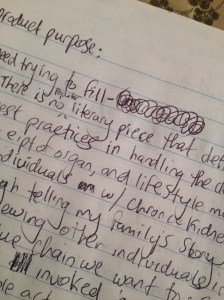 product purpose:
eed trying to fill-
There is no literary piece that def
major
est practices in handling the c
ept organ, and lifestyle m
dividuals w/ chronic kidne
gh telling my family's story
ewing other individuals
ue chain we want t
invoked